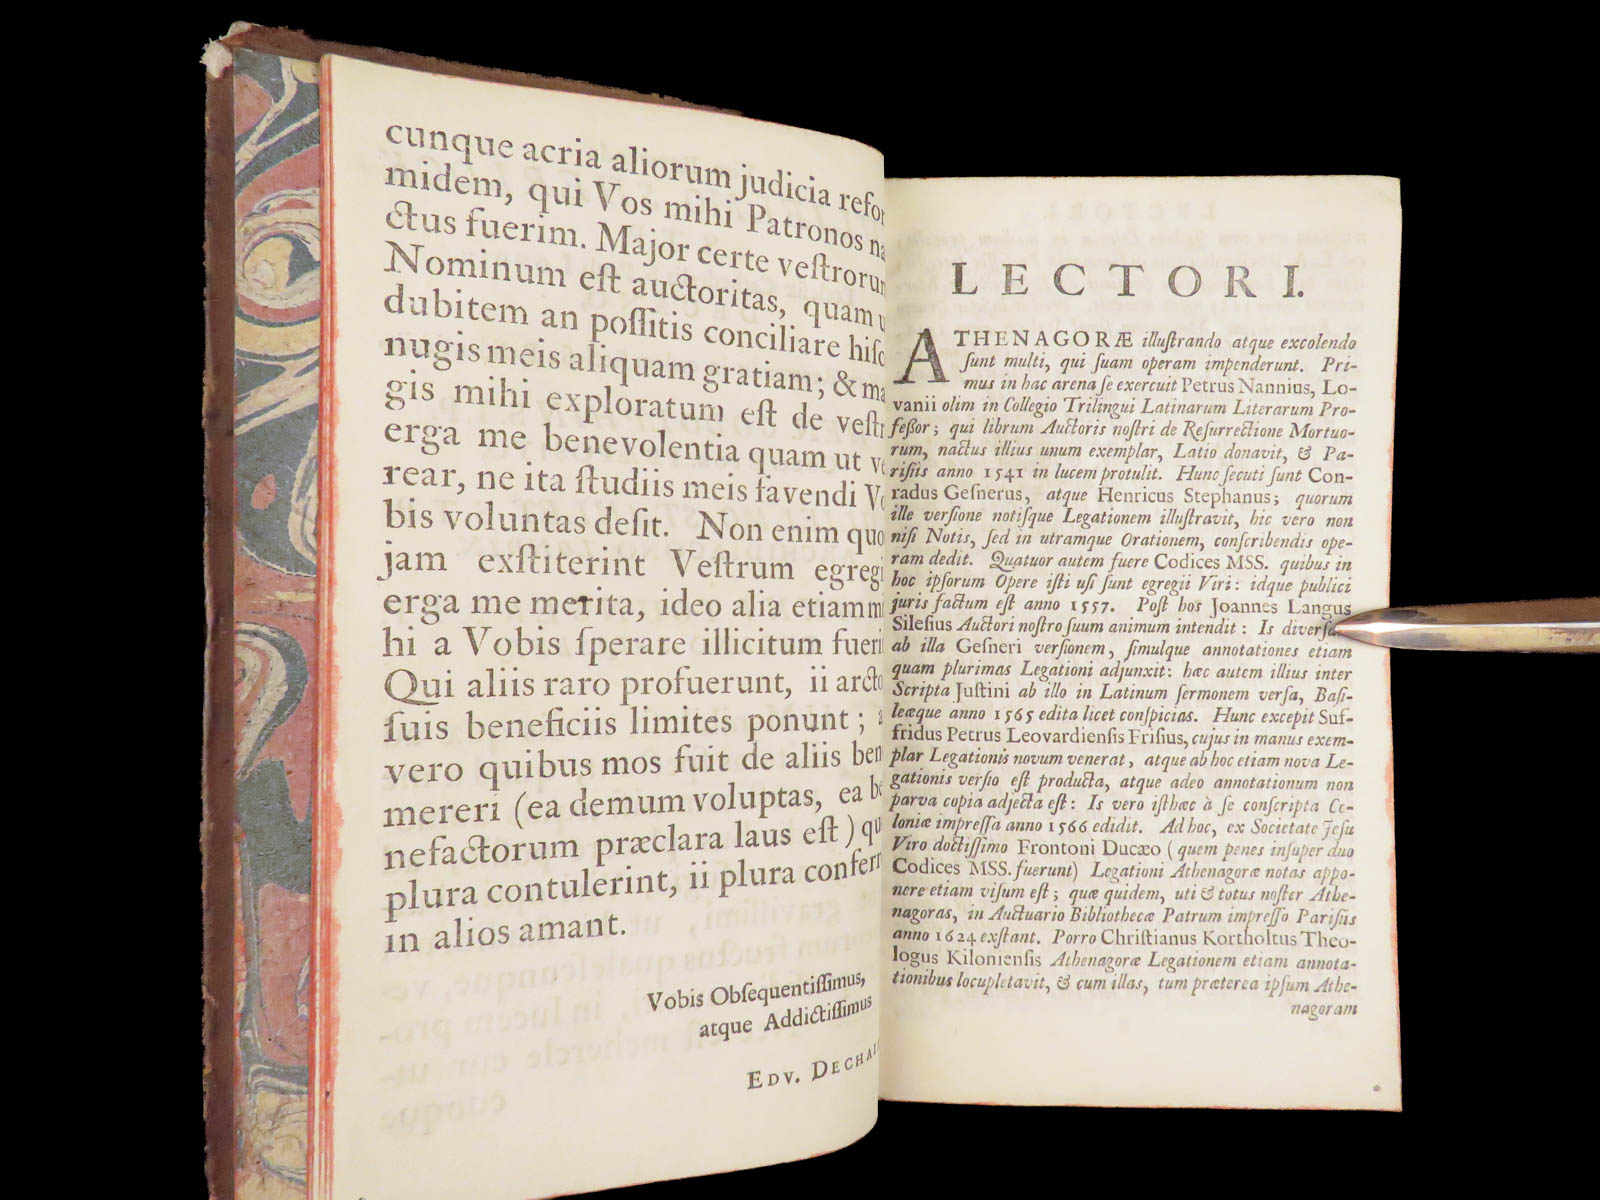 cunque acria aliorum judicia refor
midem, qui Vos mihi Patronos na
ctus fuerim. Major certe veſtrorum
Nominum eſt auctoritas, quam u
dubitem an poſſitis conciliare hiſc
nugis meis aliquam gratiam; & ma
gis mihi exploratum eſt de veſtr
erga me benevolentia quam ut ve
rear, ne ita ſtudiis meis favendi Vo
bis voluntas deſit. Non enim quo
jam exſtiterint Veſtrum egregi
erga me merita, ideo alia etiam mi
hi a Vobis ſperare illicitum fueri
Qui aliis raro profuerunt, ii arcto
ſuis beneficiis limites ponunt;
vero quibus mos fuit de aliis ben
mereri (ea demum voluptas, ea be
nefactorum præclara laus eſt) qu
plura contulerint, ii plura conferr
in alios amant.
Vobis Obſequentiſſimus,
atque Addictiſſimus
EDV. DECHAI
LECTORI.
ATHENAGORÆ illuſtrando atque excolendo
ſunt multi, qui ſuam operam impenderunt. Pri-
mus in hac arena ſe exercuit Petrus Nannius, Lo-
vanii olim in Collegio Trilingui Latinarum Literarum Pro-
feſſor; qui librum Auctoris noſtri de Reſurrectione Mortuo-
rum, nactus illius unum exemplar, Latio donavit, & Pa-
riſiis anno 1541 in lucem protulit. Hunc ſecuti ſunt Con-
radus Geſnerus, atque Henricus Stephanus; quorum
ille verſione notiſque Legationem illuſtravit, hic vero non
niſi Notis, ſed in utramque Orationem, conſcribendis ope-
ram dedit. Quatuor autem fuere Codices MSS. quibus in
hoc ipſorum Opere iſti uſi ſunt egregii Viri: idque publici
juris factum eſt anno 1557. Poſt hos Joannes Langus
Sileſius Auctori noſtro ſuum animum intendit: Is diverſam
ab illa Geſneri verſionem, ſimulque annotationes etiam
quam plurimas Legationi adjunxit: hæc autem illius inter
Scripta Juſtini ab illo in Latinum ſermonem verſa, Baſi-
leæque anno 1565 edita licet conſpicias. Hunc excepit Suf-
fridus Petrus Leovardienſis Friſius, cujus in manus exem-
plar Legationis novum venerat, atque ab hoc etiam nova Le-
gationis verſio eſt producta, atque adeo annotationum non
parva copia adjecta eſt: Is vero iſthæc à ſe conſcripta Co-
loniæ impreſſa anno 1566 edidit. Ad hoc, ex Societate Jeſu
Viro doctiſſimo Frontoni Ducæo (quem penes inſuper duo
Codices MSS. fuerunt) Legationi Athenagoræ notas appo-
nere etiam viſum eſt; quæ quidem, uti & totus noſter Athe-
nagoras, in Auctuario Bibliothecæ Patrum impreſſo Pariſiis
anno 1624 exſtant. Porro Chriſtianus Kortholtus Theo-
logus Kilonienſis Athenagoræ Legationem etiam annota-
tionibus locupletavit, & cum illas, tum præterea ipſum Athe-
nagoram